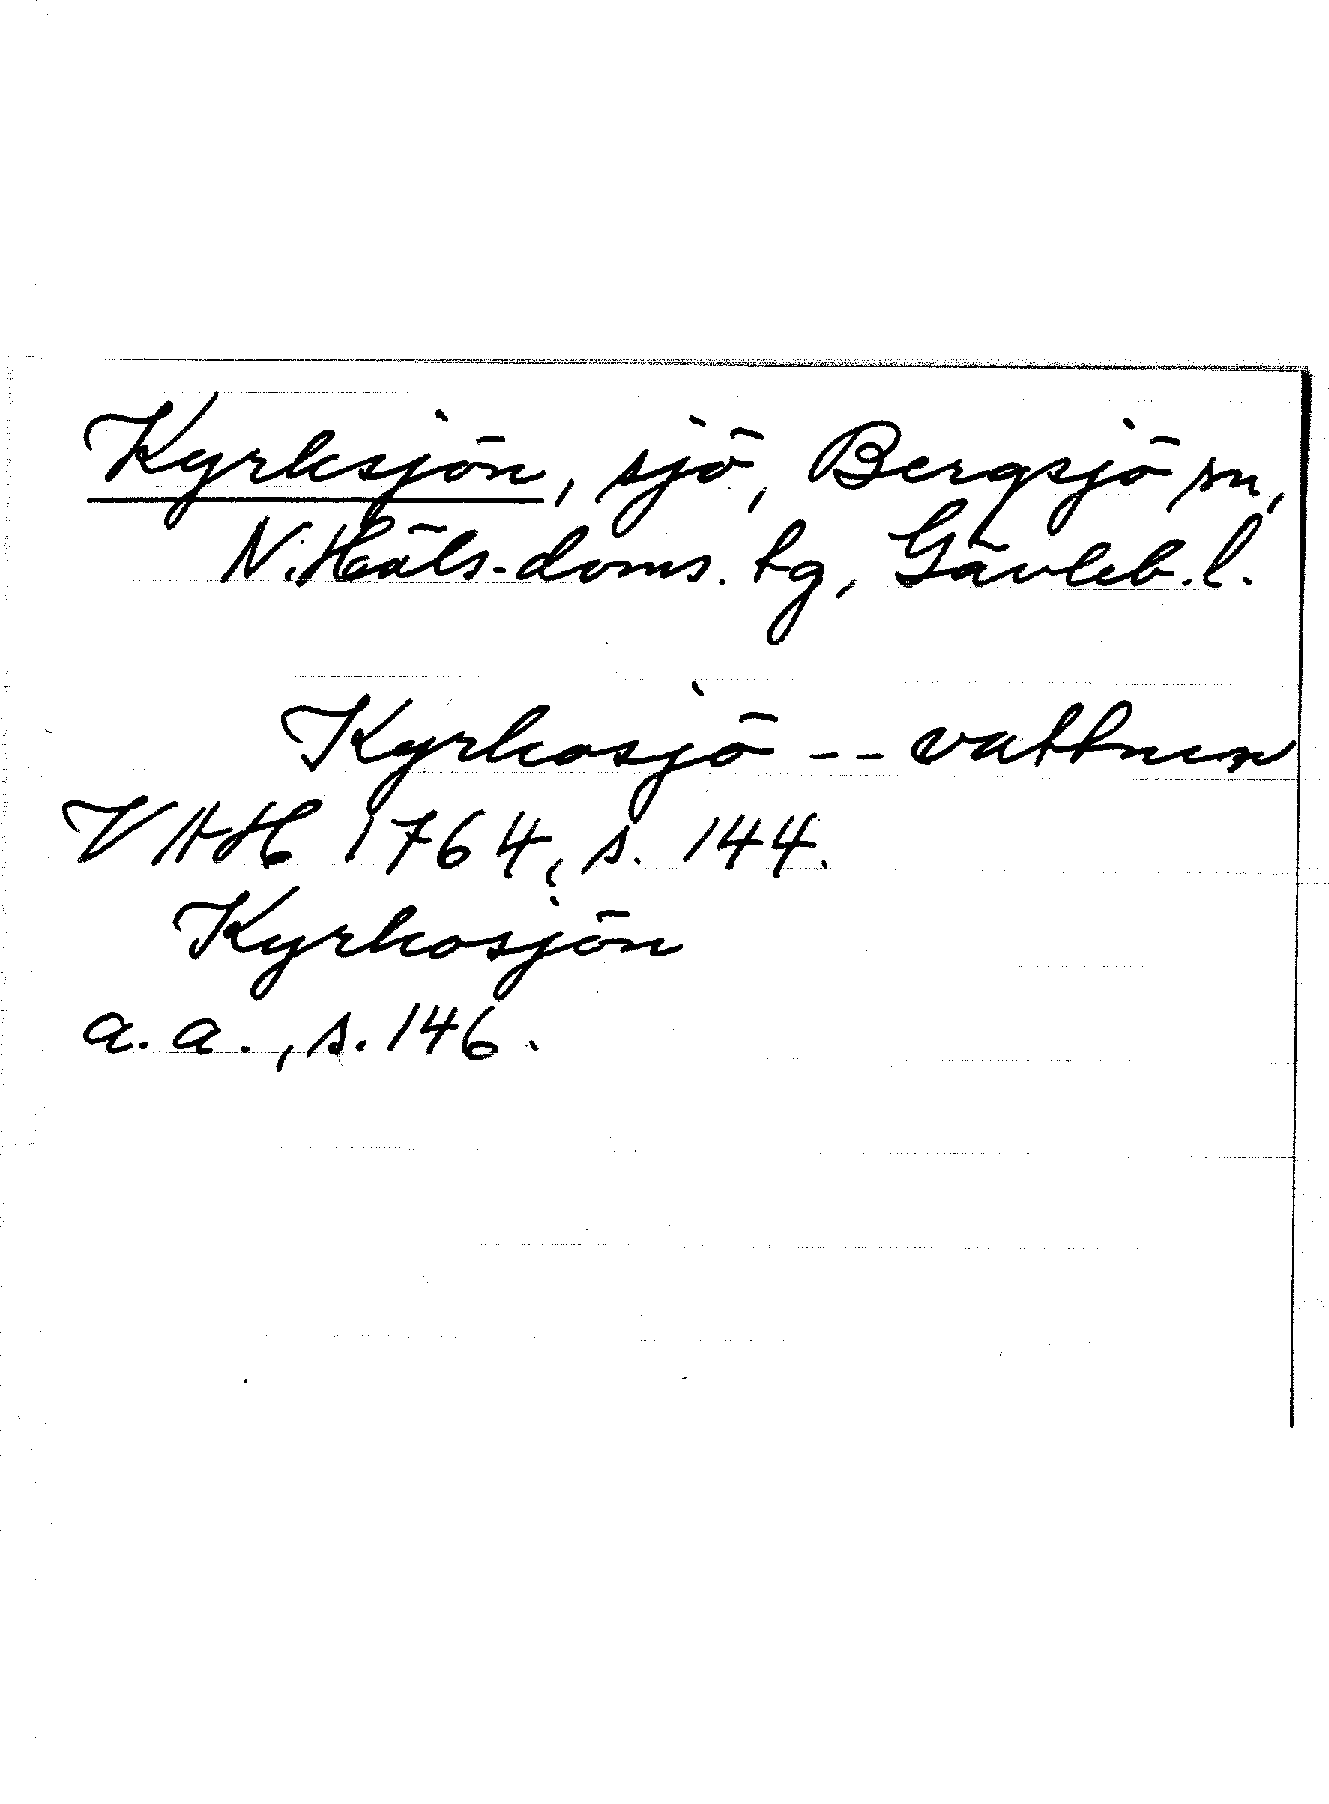 Kyrksjön, sjö, Bergsjö sn,
N. Häls. doms. tg, Gävleb. l.
Kyrkosjö -- vattnen
VAH 1764, s. 144.
Kyrkosjön
a. a., s. 146.